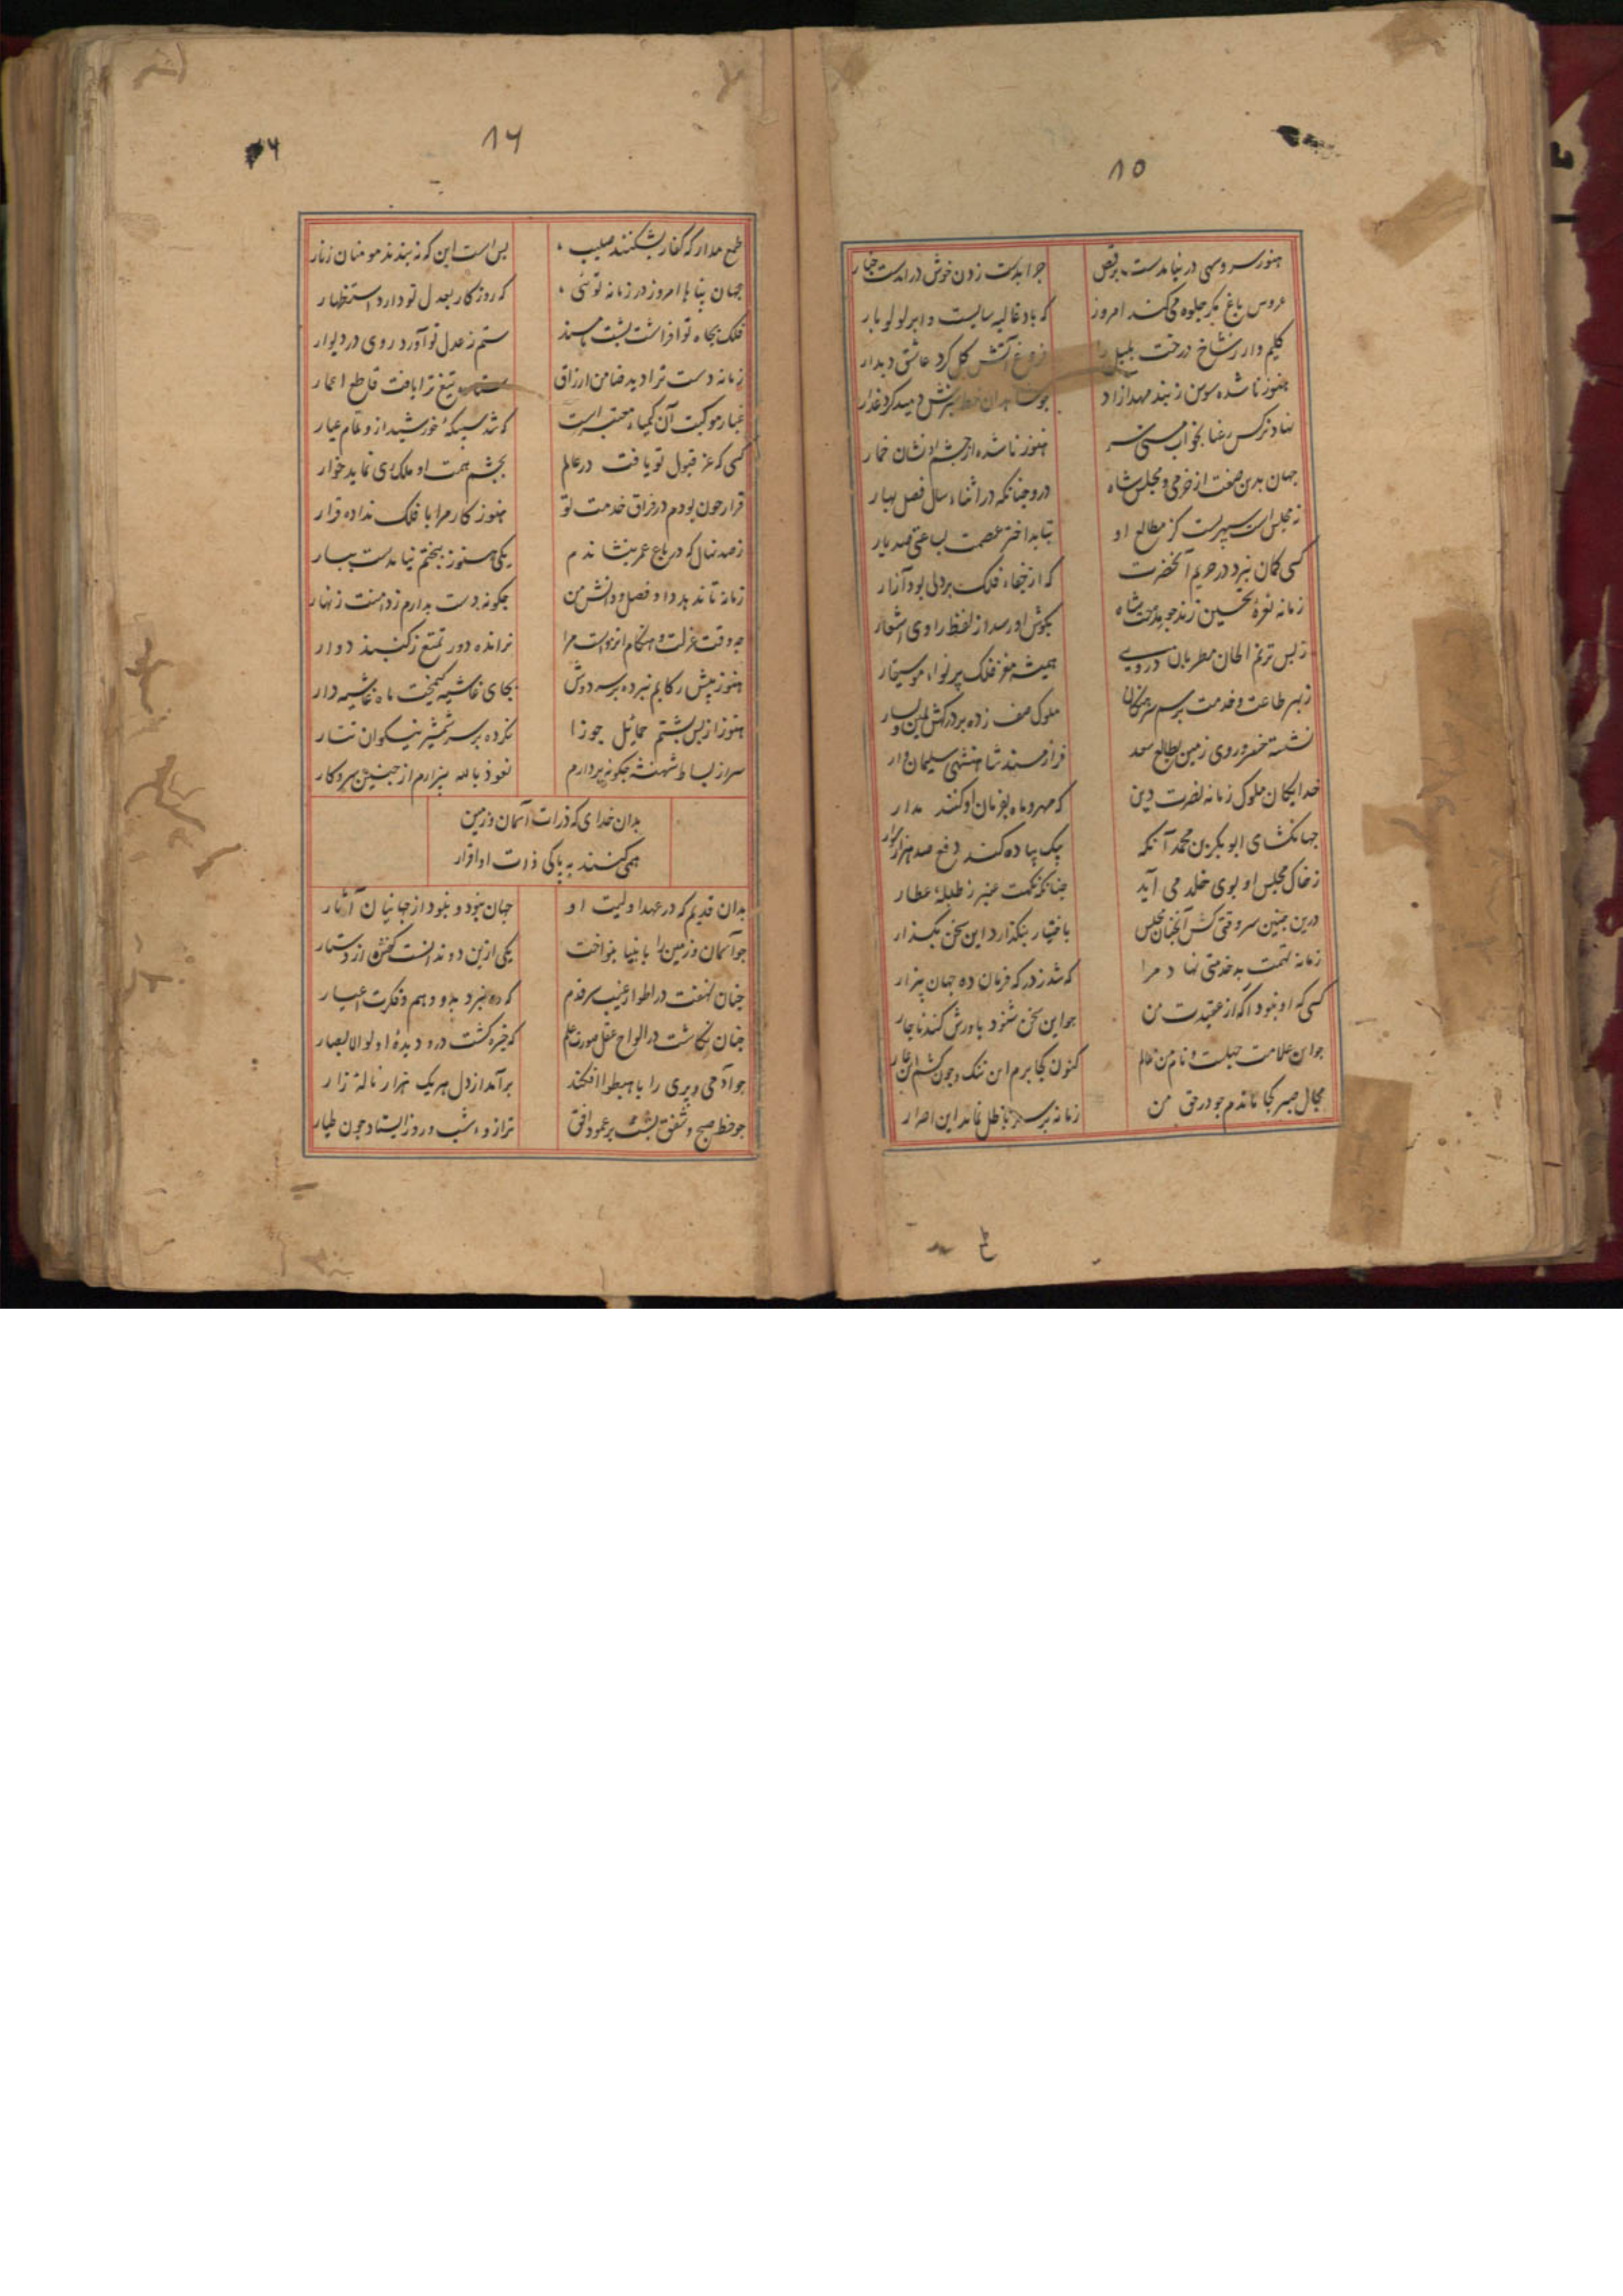 ۸۵
هنوز سرو سهی در نیامدست برقص چرا بدست زدن خوش درآمدست چنار
عروس باغ مکر جلوه می‌کند امروز که باد غالیه سایست و ابر لولو بار
کلیم وار ز شاخ درخت بلبل را فروغ آتش کل کرد عاشق دیدار
هنوز ناشده سوسن ز بند مهد آزاد چو شاهدان خط سبزش دمید کرد عذار
نهاد نرکس رعنا بخواب مستی سر هنوز ناشده از چشم او نشان خمار
جهان بدین صفت از خرمی و مجلس شاه درو چنانکه در اثناء سال فصل بهار
ز مجلس سپهریست کز مطالع او بتابد اختر عصمت بساعتی صد بار
کسی کمان نبرد در حریم آنحضرت که از جفاء فلک بر دلی بود آزار
زمانه نعرهٔ تحسین زند جو مدحت شاه بکوش او رسد از لفظ راوی اشعار
ز بس ترنم الحان مطربان در وی همیشه مغز فلک پر نواء موسیقار
ز بهر طاعت و خدمت برسم سرهنکان ملوک صف زده بر درکهش یمین و یسار
نشسته خسرو روی زمین بطالع سعد فراز مسند شاهنشهی سلیمان وار
خدایکان ملوک زمانه نصرت دین که مهر و ماه بفرمان او کنند مدار
جهانکشای ابوبکر بن محمد آنکه بیک پیاده کند دفع صد هزار سوار
ز خاک مجلس او بوی خلد می آید چنانکه نکهت عنبر ز طبلهٔ عطار
درین چنین سر وقتی کش آنچنان مجلس باختیار بنکذارد این سخن بکذار
زمانه تهمت بدخدمتی نهاد مرا که شد ز درکه فرمان ده جهان بیزار
کسی که او نبود آکه از عقیدت من جو این سخن شنود باورش کند ناچار
جو این علامت جهلست و نام من عالم کنون کجا برم این ننک و چون کشم این عار
مجال صبر کجا ماندم جو در حق من زمانه بر سر باطل نماند این اصرار
۸۶
طمع مدار که کفار بشکنند صلیب بس است این که نه بندند مومنان زنار
جهان پناها امروز در زمانه توئی که روزکار بعدل تو دارد استظهار
فلک بجاه تو افراشت پشت مسند ستم ز عدل تو آورد روی در دیوار
زمانه دست ترا دید ضامن ارزاق ستاره تیغ ترا یافت قاطع اعمار
غبار موکبت آن کیمیاء معتبر است که شد سبیکهٔ خورشید ازو تمام عیار
کسی که عز قبول تو یافت در عالم بچشم همت او ملک ری نماید خوار
قرار چون بودم در فراق خدمت تو هنوز کار مرا با فلک نداده قرار
ز صد نهال که در باغ عمر بنشاندم یکی هنوز ببختم نیامدست ببار
زمانه تا ندهد داد فضل و دانش من چکونه دست بدارم ز دامنت زنهار
چه وقت عزلت و هنکام انزواست مرا نرانده دور تمتع ز کنبد دوار
هنوز پیش رکابم نبرده بر سر دوش بجای غاشیه کیمخت ماه غاشیه دار
هنوز از پس پشتم حمائل جوزا نکرده بر سر شمشیر نیکوان نثار
سر از بساط شهنشه چکونه بردارم نعوذ بالله بیزارم از چنین سر و کار
بدان خدای که ذرات آسمان و زمین
همی کنند به پاکی ذات او اقرار
بدان قدیم که در عهد اولیت او جهان نبود و نبود از جهانیان آثار
جو آسمان و زمین را بابنیا بنواخت یکی ازین دو ندانست کفش از دستار
چنان نهفت در اطوار غیب سر قدم که ره نبرد بدو وهم و فکرت اغیار
چنان نکاشت در الواح عقل صورت علم که خیره کشت درو دیدهٔ اولوالابصار
جو آدمی و پری را باهبطوا افکند برآمد از دل هریک هزار نالهٔ زار
جو خط صبح و شفق بست بر عمود افق ترازوء شب و روز ایستاد چون طیار